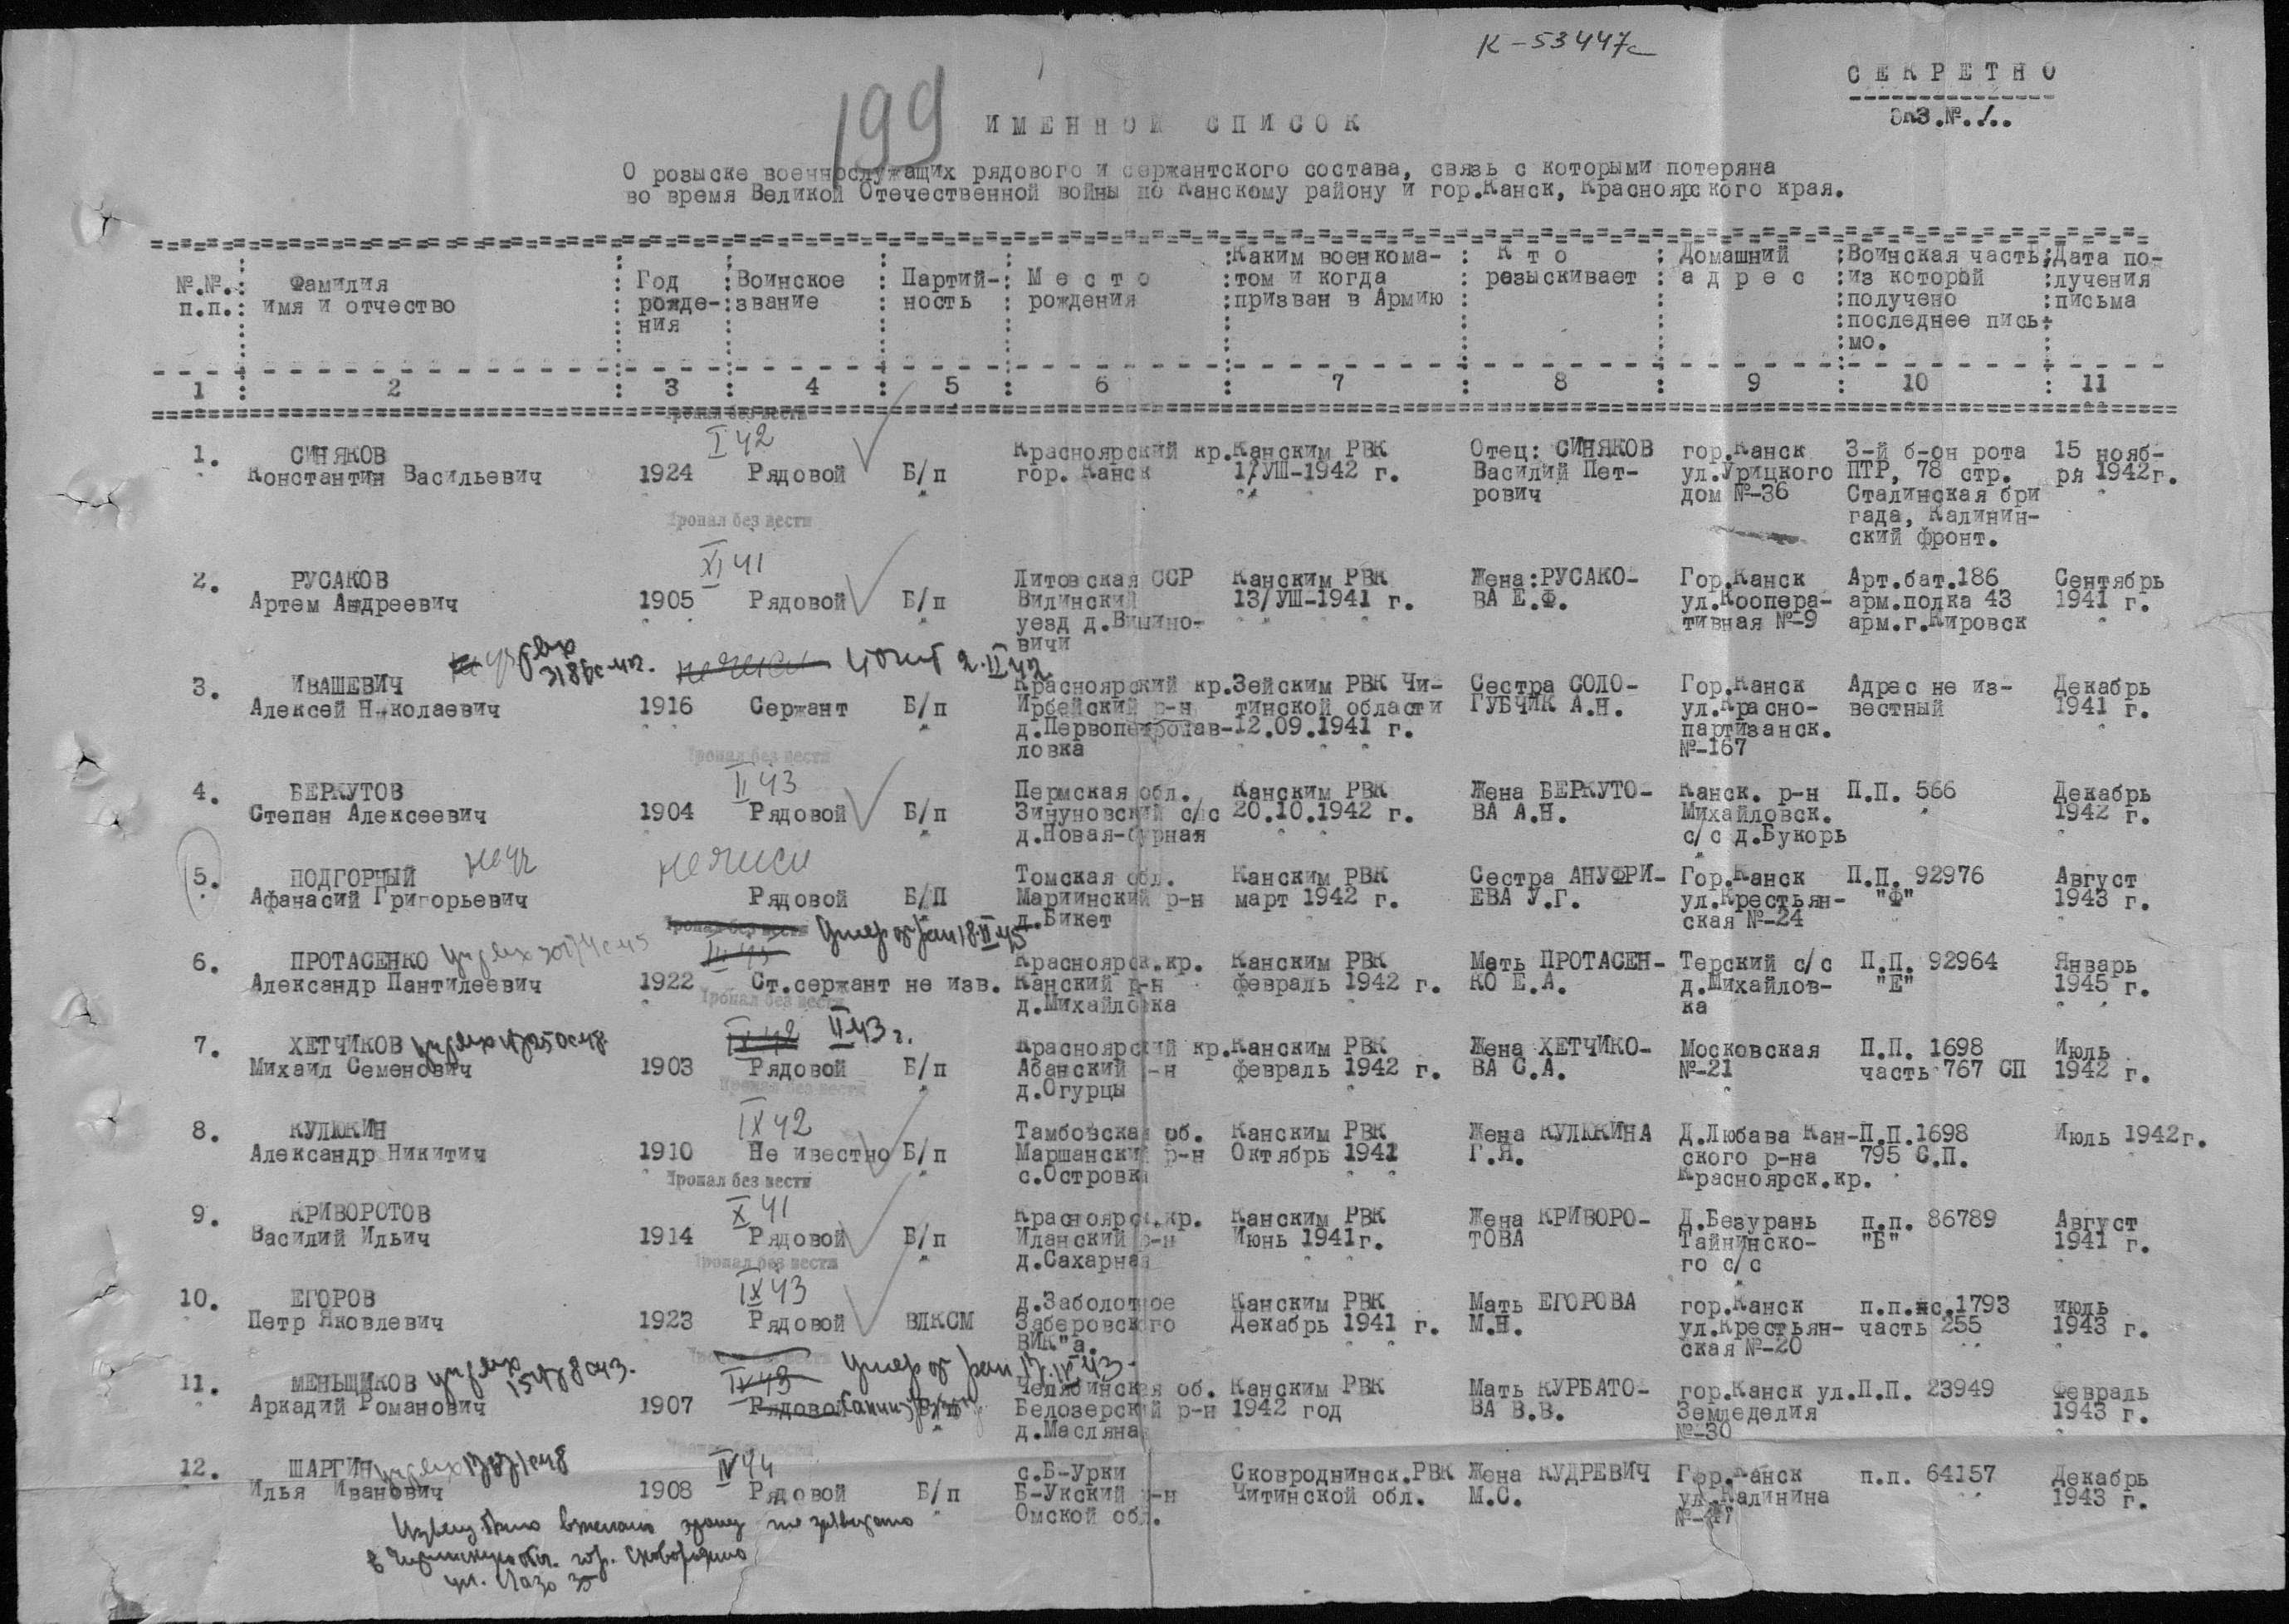 К-53447с
СЕКРЕТНО
Экз.№.1..
199
ИМЕННОЙ СПИСОК
О розыске военнослужащих рядового и сержантского состава, связь с которыми потеряна
во время Великой Отечественной войны по Канскому району и гор.Канск, Красноярского края.
№.№. : Фамилия : Год : Воинское : Партий- : Место :Каким военкома- : Кто : Домашний :Воинская часть:Дата по-
п.п.: имя и отчество : рожде-:звание : ность : рождения :том и когда : розыскивает : адрес :из которой :лучения
: ния :призван в Армию : :получено :письма
:последнее пись-
:мо.
1 : 2 : 3 : 4 : 5 : 6 : 7 : 8 : 9 : 10 : 11
Пропал без вести
I 42
1. СИНЯКОВ Красноярский кр.Канским РВК Отец: СИНЯКОВ гор.Канск 3-й б-он рота 15 нояб-
Константин Васильевич 1924 Рядовой Б/п гор. Канск 1/УШ-1942 г. Василий Пет- ул.Урицкого ПТР, 78 стр. ря 1942г.
рович дом №-36 Сталинская бри
гада, Калинин-
ский фронт.
Пропал без вести
XI 41
2. РУСАКОВ Литовская ССР Канским РВК Жена:РУСАКО- Гор.Канск Арт.бат.186 Сентябрь
Артем Андреевич 1905 Рядовой Б/п Вилинский 13/УШ-1941 г. ВА Е.Ф. ул.Коопера- арм.полка 43 1941 г.
уезд д.Вишино- тивная №-9 арм.г.Кировск
вичи
2.II 42
3. ИВАШЕВИЧ Красноярский кр.Зейским РВК Чи- Сестра СОЛО- Гор.Канск Адрес не из- Декабрь
Алексей Николаевич 1916 Сержант Б/п Ирбейский р-н тинской области ГУБЧИК А.Н. ул.Красно- вестный 1941 г.
д.Первопетропав-12.09.1941 г. партизанск.
ловка №-167
Пропал без вести
II 43
4. БЕРКУТОВ Пермская обл. Канским РВК Жена БЕРКУТО- Канск. р-н П.П. 566 Декабрь
Степан Алексеевич 1904 Рядовой Б/п Зинуновский с/с 20.10.1942 г. ВА А.Н. Михайловск. 1942 г.
д.Новая-бурная с/с д.Букорь
5. ПОДГОРНЫЙ Томская обл. Канским РВК Сестра АНУФРИ- Гор.Канск П.П. 92976 Август
Афанасий Григорьевич Рядовой Б/П Мариинский р-н март 1942 г. ЕВА У.Г. ул.Крестьян- "Ф" 1943 г.
д.Бикет ская №-24
Пропал без вести Умер от ран 18.II 45
6. ПРОТАСЕНКО Красноярск.кр. Канским РВК Меть ПРОТАСЕН- Терский с/с П.П. 92964 Январь
Александр Пантилеевич 1922 Ст.сержант не изв. Канский р-н февраль 1942 г. КО Е.А. д.Михайлов- "Е" 1945 г.
д.Михайловка ка
Пропал без вести
IX 42 II 43 г.
7. ХЕТЧИКОВ Красноярский кр.Канским РВК Жена ХЕТЧИКО- Московская П.П. 1698 Июль
Михаил Семенович 1903 Рядовой Б/п Абанский р-н февраль 1942 г. ВА С.А. №-21 часть 767 СП 1942 г.
д.Огурцы
Пропал без вести
IX 42
8. КУЛЮКИН Тамбовская об. Канским РВК Жена КУЛЮКИНА Д.Любава Кан-П.П.1698 Июль 1942г.
Александр Никитич 1910 Не ивестно Б/п Маршанский р-н Октябрь 1941 Г.Я. ского р-на 795 С.П.
с.Островка Красноярск.кр.
Пропал без вести
X 41
9. КРИВОРОТОВ Красноярск.кр. Канским РВК Жена КРИВОРО- Д.Безурань п.п. 86789 Август
Василий Ильич 1914 Рядовой Б/п Иланский р-н Июнь 1941г. ТОВА Тайнинско- "Б" 1941 г.
д.Сахарная го с/с
Пропал без вести
IX 43
10. ЕГОРОВ д.Заболотное Канским РВК Мать ЕГОРОВА гор.Канск п.п.пс.1793 июль
Петр Яковлевич 1923 Рядовой ВЛКСМ Заберовского Декабрь 1941 г. М.Н. ул.Крестьян- часть 255 1943 г.
ВИК"а. ская №-20
IX 43 Умер от ран
11. МЕНЬЩИКОВ Челябинская об. Канским РВК Мать КУРБАТО- гор.Канск ул.П.П. 23949 Февраль
Аркадий Романович 1907 Рядовой Б/п Белозерский р-н 1942 год ВА В.В. Земледелия 1943 г.
д.Масляна №-30
IV 44
12. ШАРГИН с.Б-Урки Сковроднинск.РВК Жена КУДРЕВИЧ Гор.Канск п.п. 64157 Декабрь
Илья Иванович 1908 Рядовой Б/п Б-Укский р-н Читинской обл. М.С. ул.Калинина 1943 г.
Омской обл.
гор. Сковородино
ул. Лазо 35